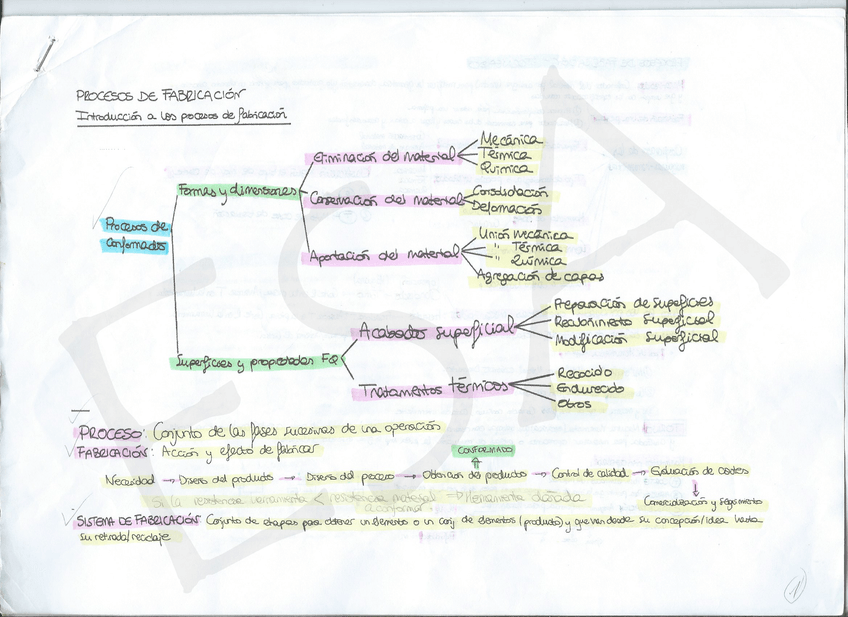 PROCESOS DE FABRICACIÓN
Introducción a los procesos de fabricación
Eliminación del material
Mecánica
Térmica
Química
Formas y dimensiones
Conservación del material
Consolidación
Deformación
Procesos de
conformados
Aportación del material
Unión mecánica
" Térmica
" Química
Agregación de capas
Superficies y propiedades FQ
Acabados superficial
Preparación de superficies
Recubrimiento superficial
Modificación superficial
Tratamientos térmicos
Recocido
Endurecido
Otros
PROCESO: Conjunto de las fases sucesivas de una operación
FABRICACIÓN: Acción y efecto de fabricar
CONFORMADO
Necesidad → Diseño del producto → Diseño del proceso → Obtención del producto → Control de calidad → Evaluación de costes
Si la resistencia herramienta < resistencia material → Herramienta dañada
a conformar
Comercialización y seguimiento
SISTEMA DE FABRICACIÓN Conjunto de etapas para obtener un elemento o un conj. de elementos (producto) y que van desde su concepción/idea hasta
su retirada/reciclaje
1